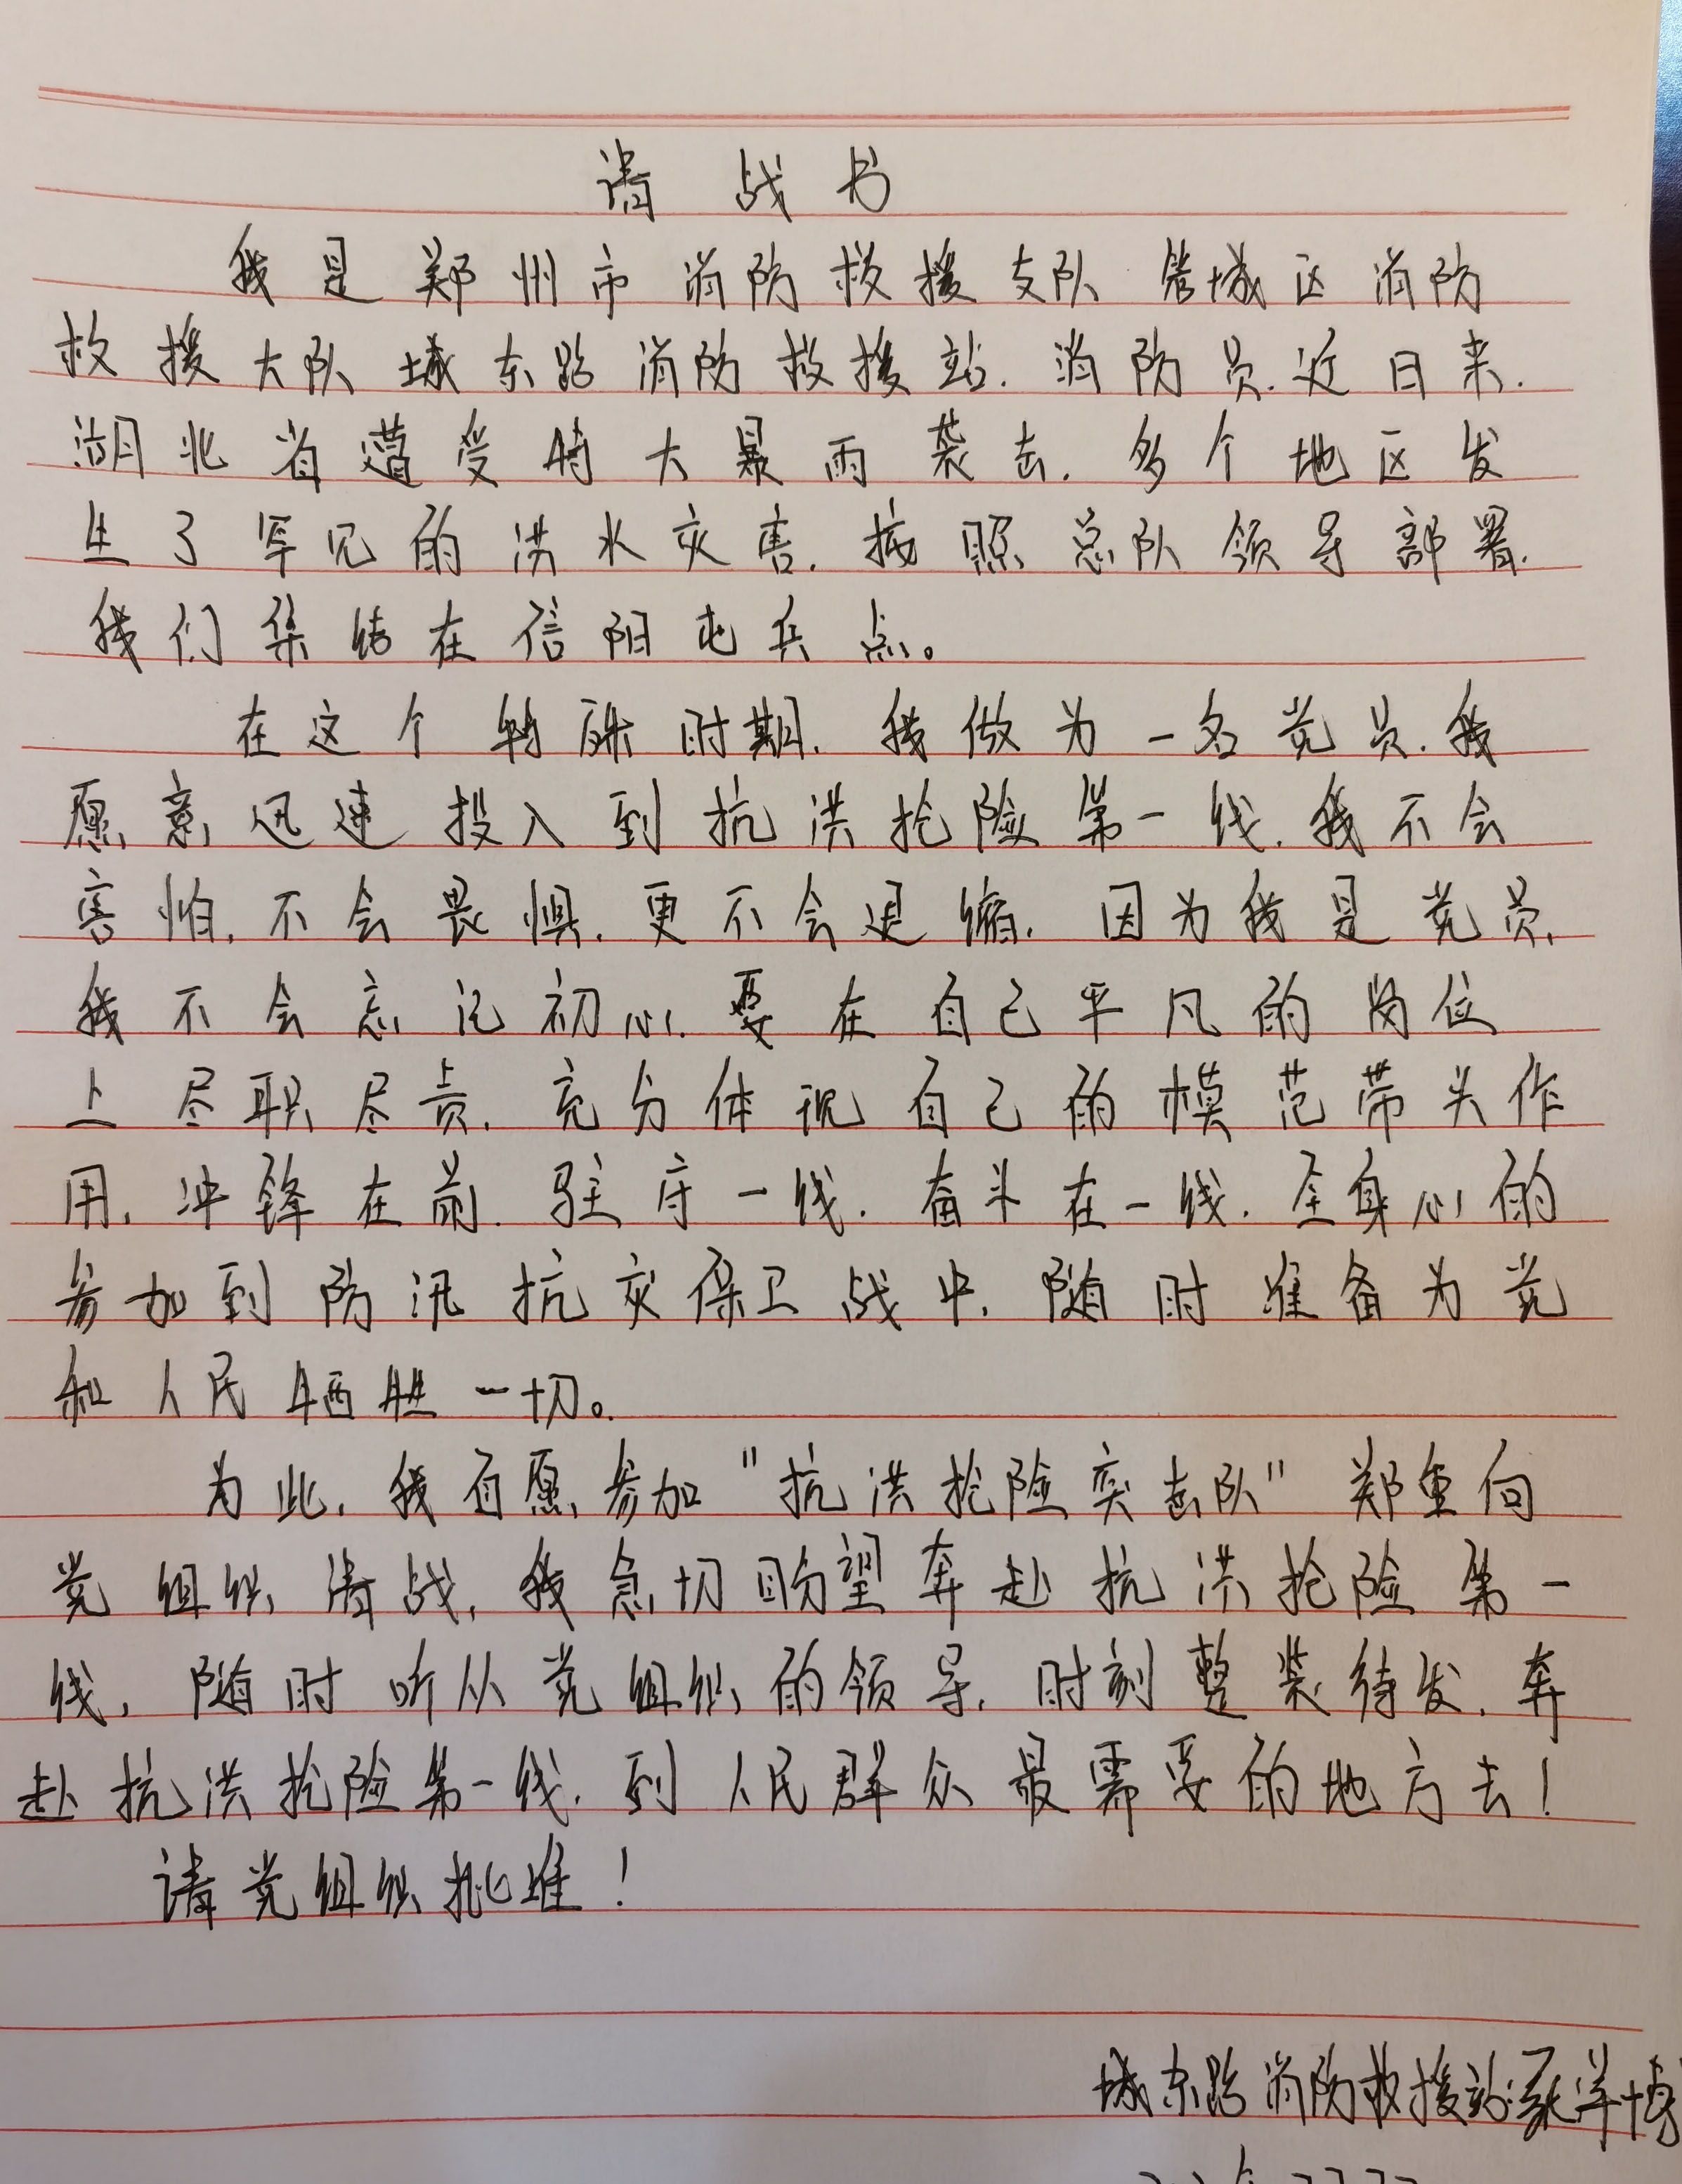 请战书
我是郑州市消防救援支队管城区消防
救援大队城东路消防救援站.消防员.近日来.
湖北省遭受特大暴雨袭击.多个地区发
生了罕见的洪水灾害.按照总队领导部署.
我们集结在信阳屯兵点。
在这个特殊时期.我做为一名党员.我
愿意迅速投入到抗洪抢险第一线.我不会
害怕.不会畏惧.更不会退缩.因为我是党员.
我不会忘记初心.要在自己平凡的岗位
上尽职尽责.充分体现自己的模范带头作
用.冲锋在前.驻守一线.奋斗在一线.全身心的
参加到防汛抗灾保卫战中.随时准备为党
和人民牺牲一切。
为此.我自愿参加"抗洪抢险突击队"郑重向
党组织请战.我急切盼望奔赴抗洪抢险第一
线.随时听从党组织的领导.时刻整装待发.奔
赴抗洪抢险第一线.到人民群众最需要的地方去!
请党组织批准!
城东路消防救援站:洋博